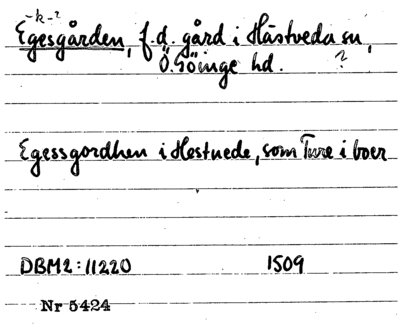 -k-?
Egesgården, f.d. gård i Hästveda sn,
Ö. Göinge hd. ?
Egessgordhen i Hestuede, som Ture i boer
DBM2:11220 1509
Nr 5424